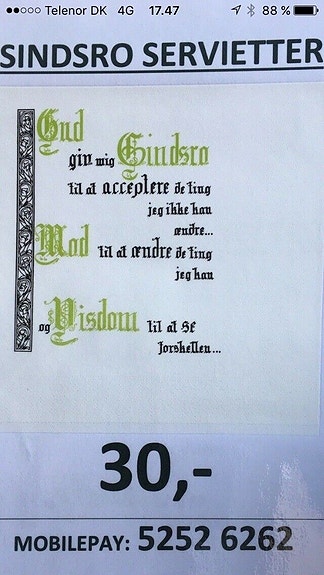 Telenor DK 4G 17.47 88 %
SINDSRO SERVIETTER
Gud
giv mig Sindsro
til at acceptere de ting
jeg ikke kan
ændre...
Mod til at ændre de ting
jeg kan
og Visdom til at se
forskellen...
30,-
MOBILEPAY: 5252 6262